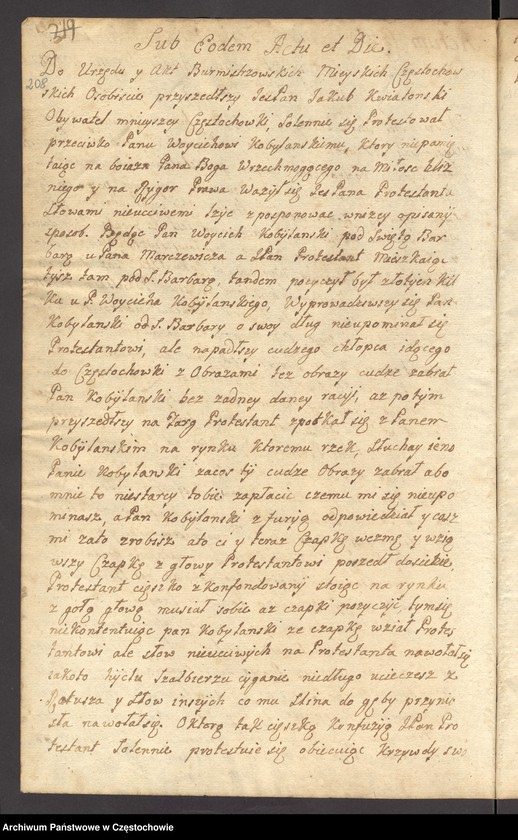 719
208
Sub Eodem Actu et Die.
Do Urzędu y Akt Burmistrzowskich Mieyskich Częstochow
skich Osobiscie przyszedłszy JesPan Jakub Kwiatonski
Obywatel mnieyszey Częstochowki, Solennie się Protestował
przeciwko Panu Woyciechowi Kobyłanskiemu, ktory niepamię
taiąc na boiazn Pana Boga Wrzechmogącego, na Miłosc bliz
niego y na Rygor Prawa Wazył się JesPana Protestanta
Słowami nieucciwemi lzyc y zposponowac wnizey opisany
sposob. Będąc Pan Woycich Kobyłanski pod Swiętą Bar
barą u Pana Marczewicza a JPan Protestant Mieszkaiąc
tysz tam pod S. Barbarą, tandem pozyczył był złotych Kil
ka u P. Woycicha Kobyłanskiego, Wyprowadziwszy się Pan
Kobyłanski od S. Barbary o swoy dług nieupominał się
Protestantowi, ale napadłszy cudzego chłopca idącego
do Częstochowki z Obrazami tez obrazy cudze zabrał
Pan Kobyłanski bez zadney daney racyi, az potym
przyszedłszy na Targ Protestant zpotkał się z Panem
Kobyłanskim na rynku ktoremu rzek, Słuchay ieno
Panie Kobyłanski zacos ty cudze Obrazy zabrał abo
mnie to niestarcy tobie zapłacic czemu mi się nieupo
minasz, a Pan Kobyłanski z furyą odpowiedział y cosz
mi zato zrobisz ato ci y teraz Czapkę wezmę y wzią
wszy Czapkę z głowy Protestantowi poszedł do siebie,
Protestant cięszko zkonfondowany stoiąc na rynku
z gołą głową musiał sobie az czapki pozyczyc, tym się
niekontentuiąc pan Kobyłanski ze czapkę wział Protes
tantowi ale słow nieucciwych na Protestanta nawołał się
iakoto hyclu szalbierzu cyganie niedługo ucieczesz z
Ratusza y Słow inszych co mu Slina do gęby przynie
sła nawołał się. Oktorą tak cięszką Konfuzyą JPan Pro
testant Solennie protestuie się obiecuiąc Krzywdy swo
Archiwum Państwowe w Częstochowie